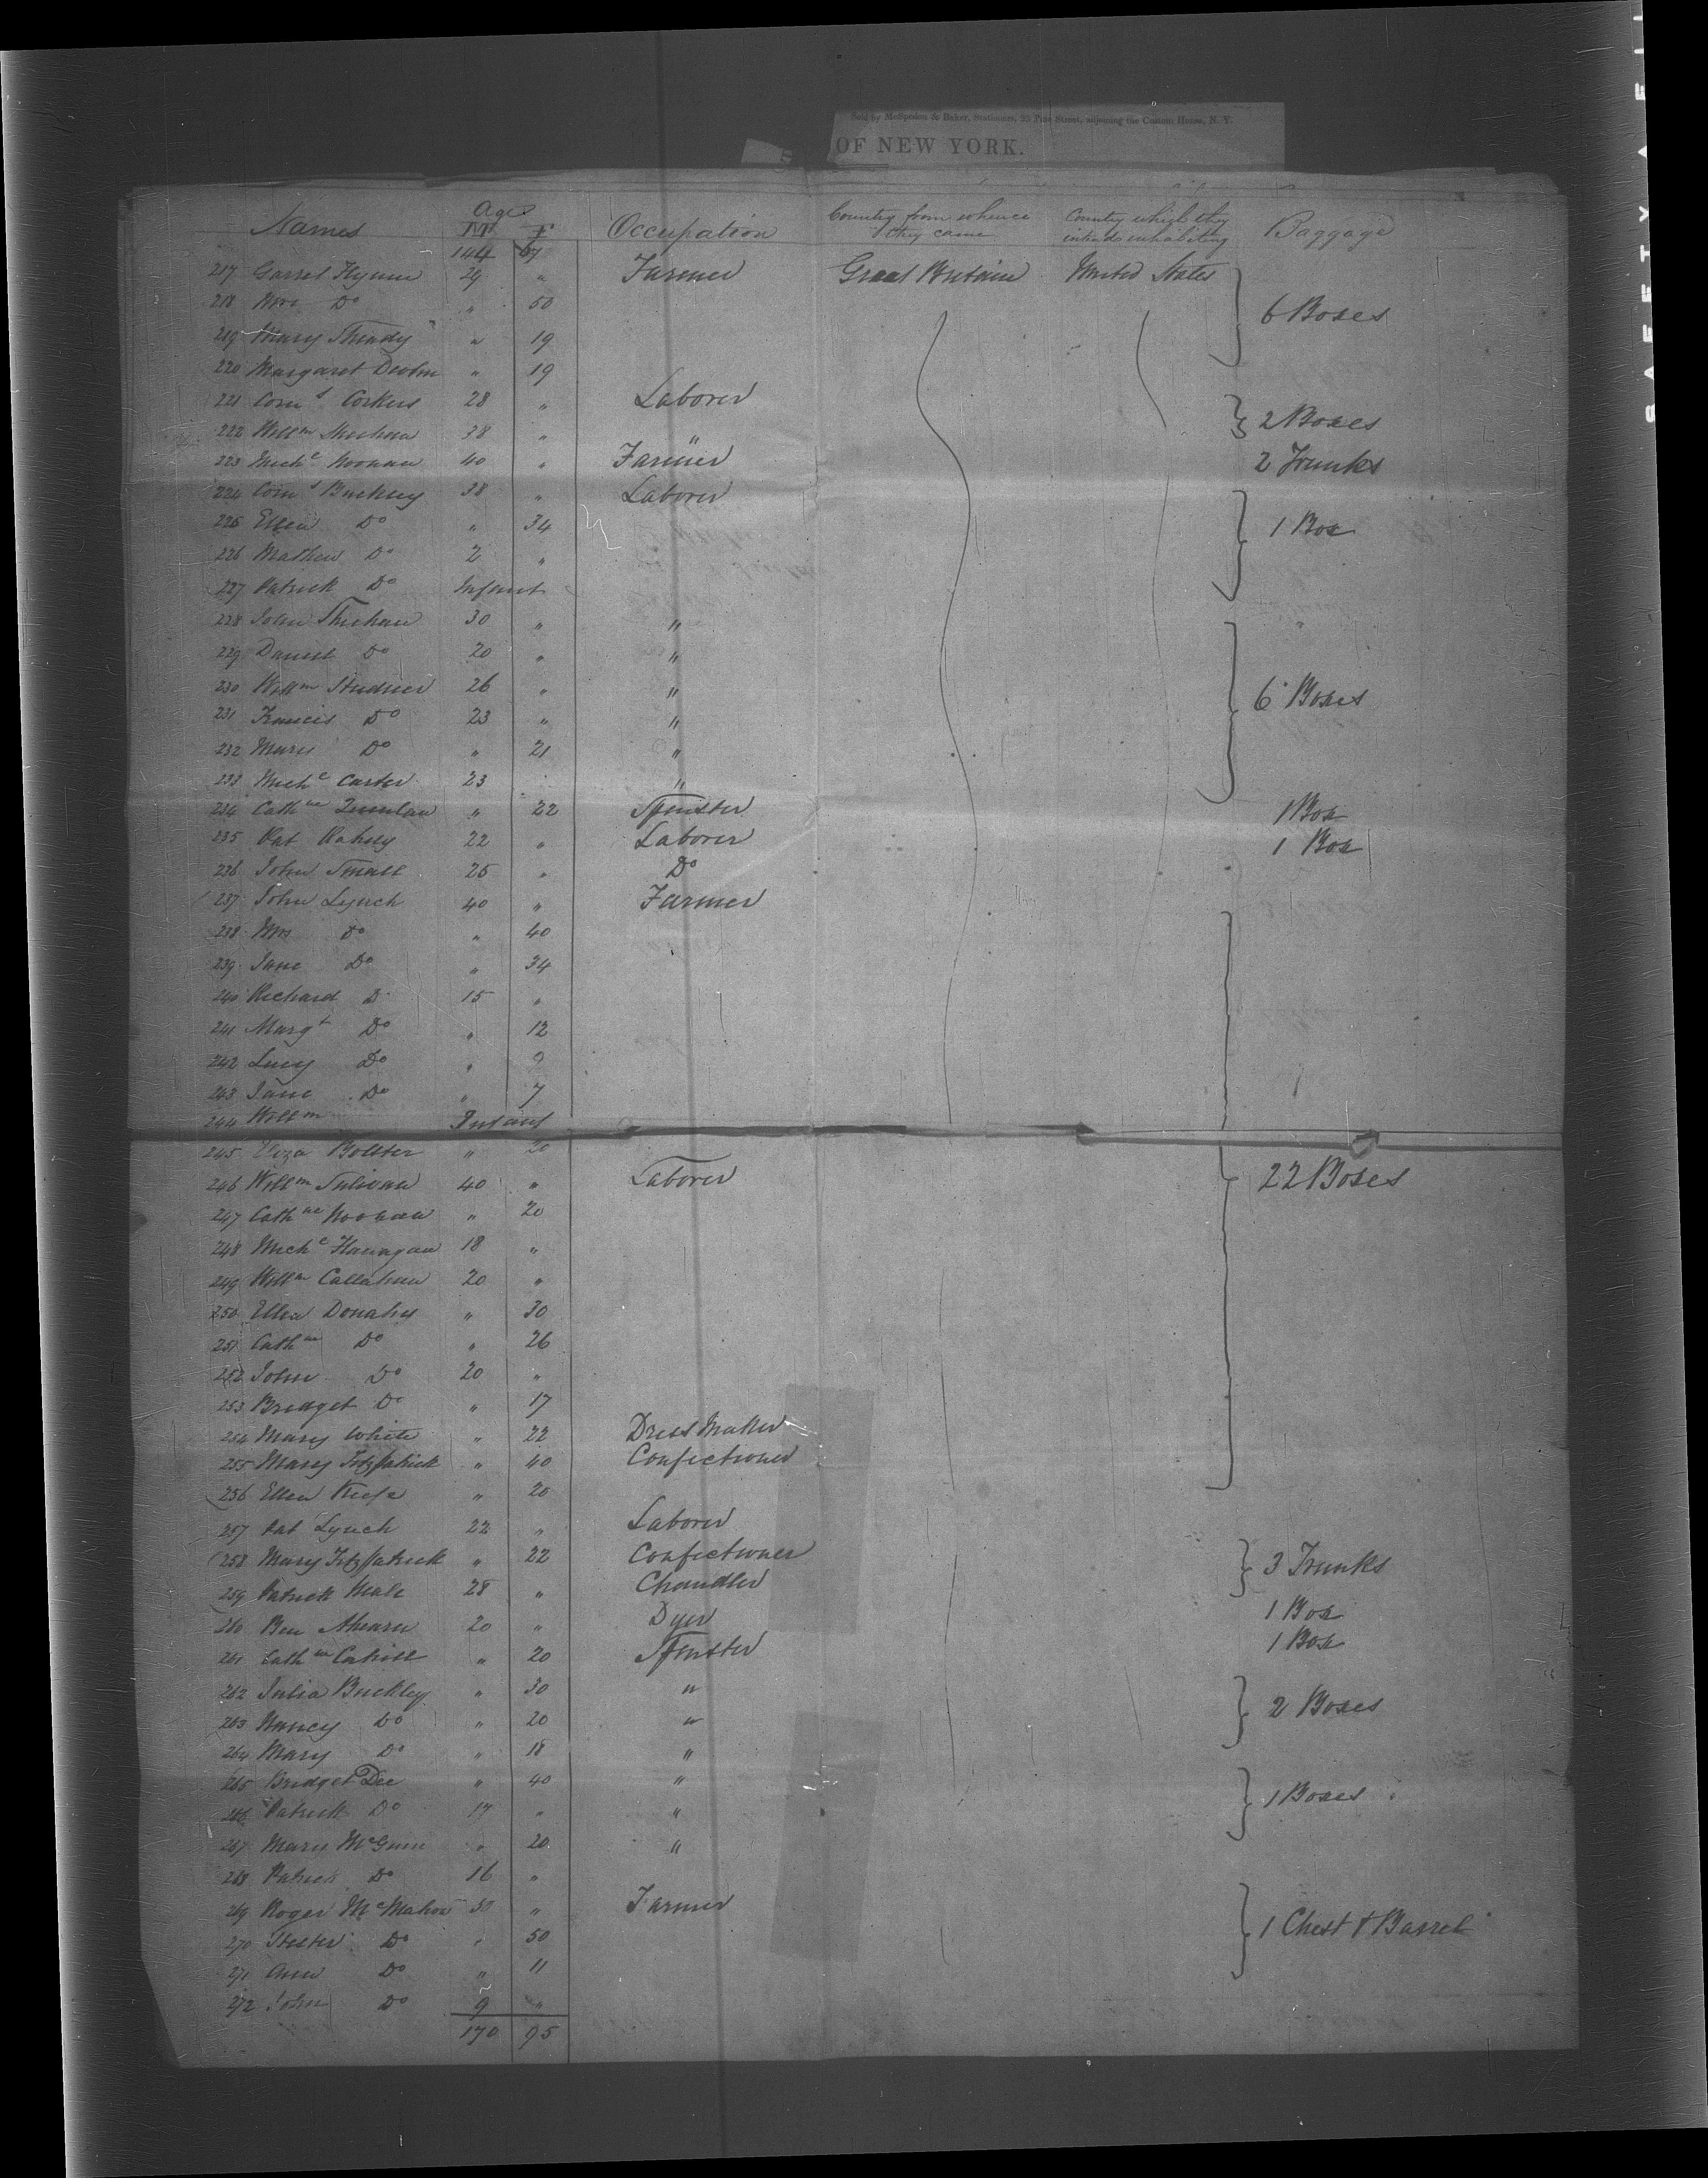 Sold by McSpedon & Baker, Stationers, 25 Pine Street, adjoining the Custom House, N. Y.
OF NEW YORK.
Names Age M F Occupation Country from whence they came Country which they intends inhabiting Baggage
144 67
217 Garret Flynn 24 " Farmer Great Britain United States
218 Mrs Do " 50 6 Boxes
219 Mary " 19
220 Margaret Devlin " 19
221 Corns Corkers 28 " Laborer
222 Willm Sheehan 38 " " 2 Boxes
223 Michl Noonan 40 " Farmer 2 Trunks
224 Corns Buckley 38 " Laborer
225 Ellen Do " 34 1 Box
226 Mathew Do 2 "
227 Patrick Do Infant
228 John Shehan 30 " "
229 Daniel Do 20 " "
230 Willm 26 " " 6 Boxes
231 Francis Do 23 " "
232 Mary Do " 21 "
233 Michl Carter 23 "
234 Cathne Quinlan " 22 Spinster 1 Box
235 Pat Kahey 22 " Laborer 1 Box
236 John Small 25 " Do
237 John Lynch 40 " Farmer
238 Mrs Do " 40
239 Jane Do " 34
240 Richard D 15 "
241 Margt Do " 12
242 Lucy Do " 9
243 Jane Do " 7
244 Willm Infant
245 Eliza Bolster " 20
246 Willm Sulivan 40 " Laborer 22 Boxes
247 Cathne Noonan " 20
248 Michl Flanagan 18 "
249 Willm Callahan 20 "
250 Ellen Donahy " 30
251 Cathne Do " 26
252 John Do 20 "
253 Bridget Do " 17
254 Mary White " 22 Dress Maker
255 Mary Fitzpatrick " 40 Confectioner
256 Ellen Keefe " 20
257 Pat Lynch 22 " Laborer
258 Mary Fitzpatrick " 22 Confectioner 3 Trunks
259 Patrick Neale 28 " Chandler
260 Ben Ahearn 20 " Dyer 1 Box
261 Cathne Cahill " 20 Spinster 1 Box
262 Julia Buckley " 30 "
263 Nancy Do " 20 " 2 Boxes
264 Mary Do " 18 "
265 Bridget Dee " 40 "
266 Patrick Do 17 " " 1 Boxes
267 Mary McGunn " 20 "
268 Patrick Do 16 "
269 Roger McMahon 50 " Farmer
270 Hester Do " 50 1 Chest & Barrel
271 Ann Do " 11
272 John Do 9 "
170 95